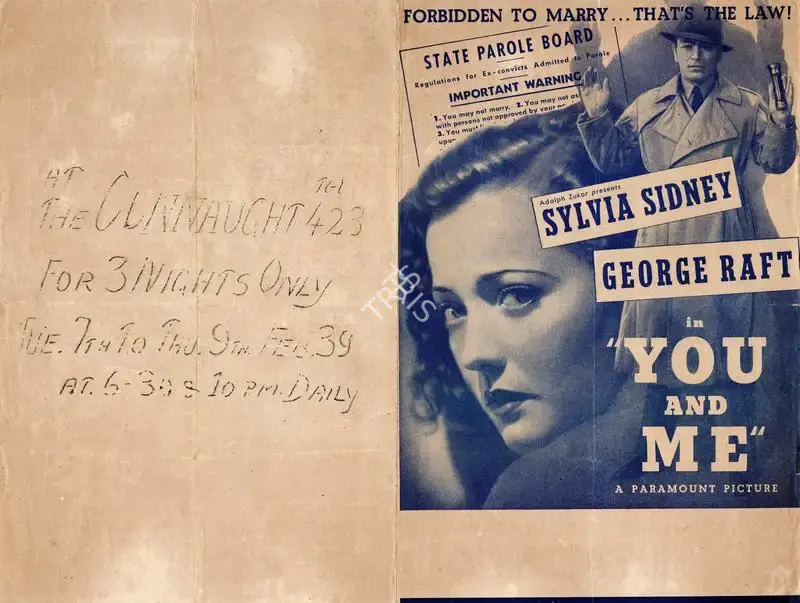 AT
TEL
THE CONNAUGHT 423
FOR 3 NIGHTS ONLY
TUE. 7TH TO THU. 9TH FEB. 39
AT. 6-30 & 10 P.M. DAILY
TRIBIS
FORBIDDEN TO MARRY...THAT'S THE LAW!
STATE PAROLE BOARD
Regulations for Ex-convicts Admitted to Parole
IMPORTANT WARNING
1. You may not marry. 2. You may not as
with persons not approved by your
3. You must
upon
Adolph Zukor presents
SYLVIA SIDNEY
GEORGE RAFT
in
"YOU
AND
ME"
A PARAMOUNT PICTURE